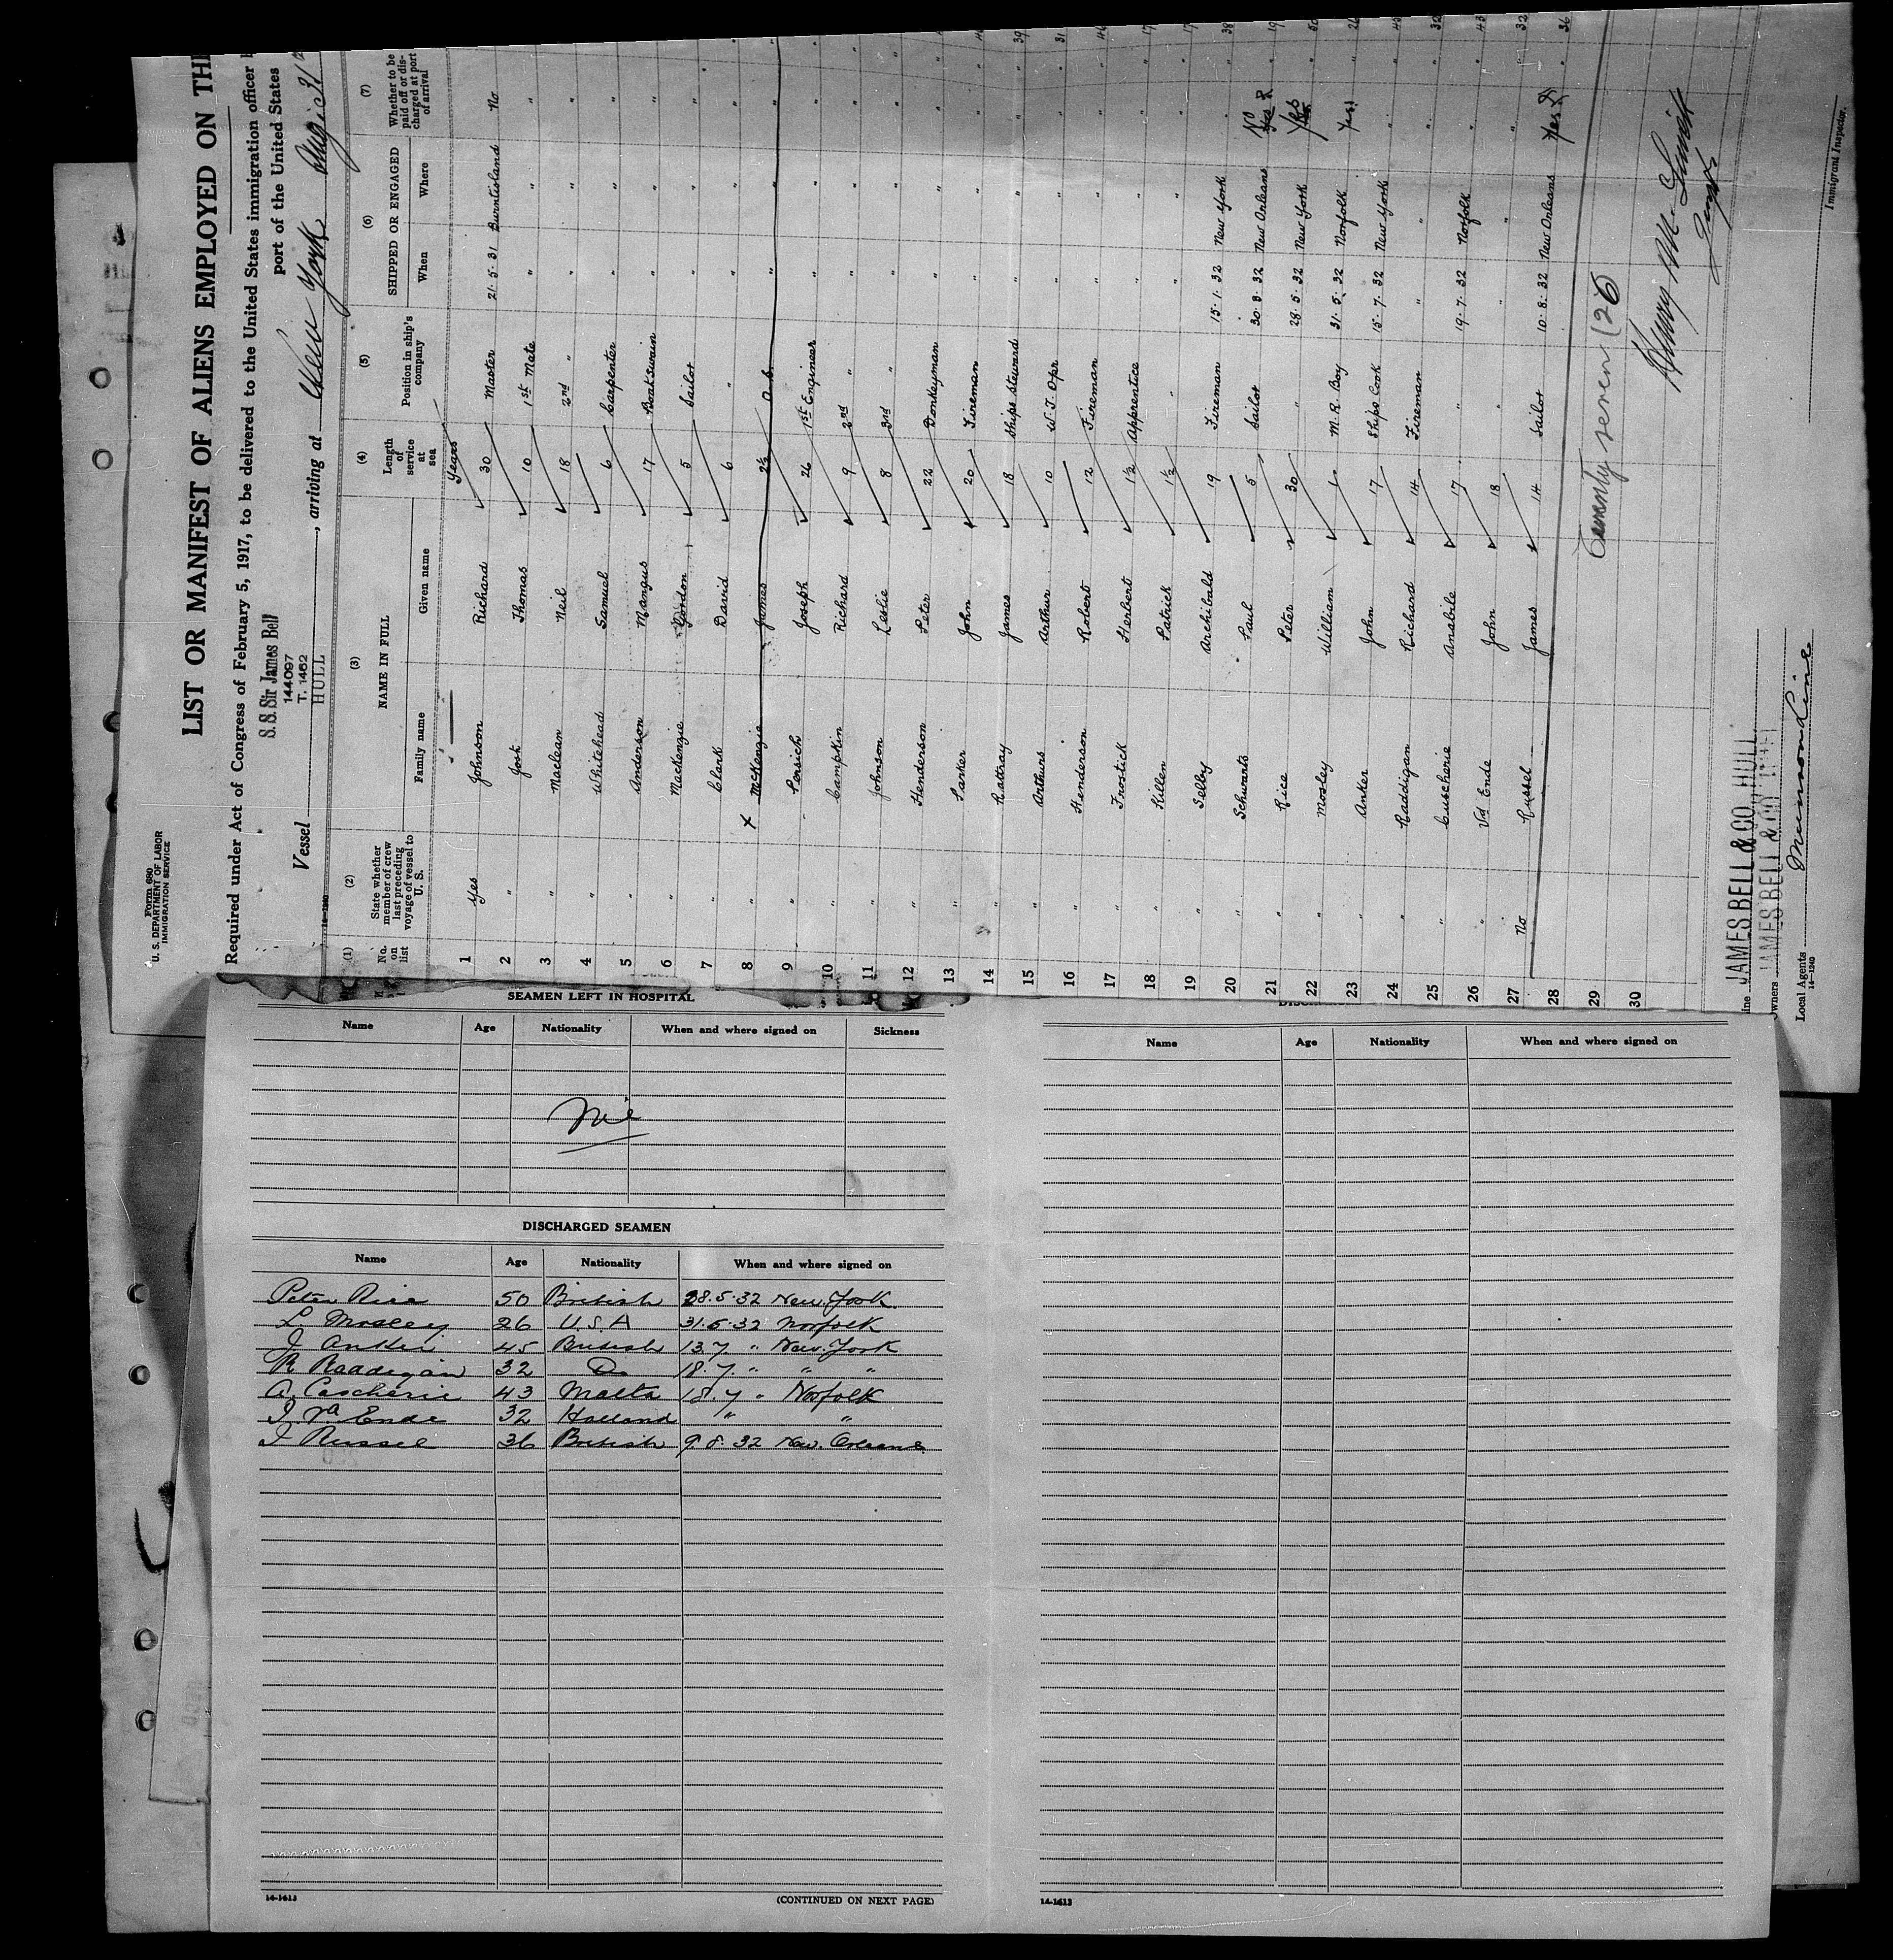 Form 680
U. S. DEPARTMENT OF LABOR
IMMIGRATION SERVICE
LIST OR MANIFEST OF ALIENS EMPLOYED ON THE
Required under Act of Congress of February 5, 1917, to be delivered to the United States immigration officer
port of the United States
S.S. Sir James Bell
144097
T. 1462
HULL
Vessel , arriving at New York Aug. 31
(1) (2) (3) (4) (5) (6) (7)
No. on list State whether member of crew last preceding voyage of vessel to U. S. NAME IN FULL Family name Given name Length of service at sea Position in ship's company SHIPPED OR ENGAGED When Where Whether to be paid off or discharged at port of arrival
Years
1 Yes Johnson Richard 30 Master 21·5·31 Burntisland No
2 " Jost Thomas 10 1st Mate " " "
3 " Maclean Neil 18 2nd " " " "
4 " Whitehead Samuel 6 Carpenter " " "
5 " Anderson Mangus 17 Boatswain " " "
6 " Mackenzie Gordon 5 Sailor " " "
7 " Clark David 6 " " " "
8 " X McKenzie James 2½ A.B. " " "
9 " Persich Joseph 26 1st Engineer " " "
10 " Campkin Richard 9 2nd " " " "
11 " Johnson Leslie 8 3rd " " " "
12 " Henderson Peter 22 Donkeyman " " "
13 " Parker John 20 Fireman " " "
14 " Rattray James 18 Ships Steward " " " 39
15 " Arthurs Arthur 10 W.T. Opr " " " 31
16 " Henderson Robert 12 Fireman " " " 46
17 " Frostick Herbert 1½ Apprentice " " " 17
18 " Killen Patrick 1½ " " " " 17
19 " Selby Archibald 19 Fireman 15·1·32 New York " 38
20 " Schwarts Paul 5 Sailor 30·3·32 New Orleans No 19
21 " Rice Peter 30 " 28·5·32 New York Yes 50
22 " Mosley William 1 M.R. Boy 31·5·32 Norfolk Yes 26
23 " Anker John 17 Ships Cook 15·7·32 New York " 45
24 " Raddigan Richard 14 Fireman " " " 32
25 " Cuscherie Anabile 17 " 19·7·32 Norfolk " 43
26 " Vd Ende John 18 " " " " 32
27 No Russel James 14 Sailor 10·8·32 New Orleans Yes 36
28
29
30
Twenty seven (26)
Immigrant Inspector.
JAMES BELL & CO. HULL
JAMES BELL &
Owners
Local Agents Munson Line
14—1240
SEAMEN LEFT IN HOSPITAL
Name Age Nationality When and where signed on Sickness
Nil
DISCHARGED SEAMEN
Name Age Nationality When and where signed on
Peter Rice 50 British 28.5.32 New York
L. Mosley 26 U.S.A 31.5.32 Norfolk
J Anker 45 British 13.7 " New York
R Raddigan 32 Do 18.7. " " "
A. Cascherie 43 Malta 18.7 " Norfolk
J Va Ende 32 Holland " "
J Russel 36 British 9.8.32 New Orleans
14-1613
(CONTINUED ON NEXT PAGE)
Name Age Nationality When and where signed on
14-1613